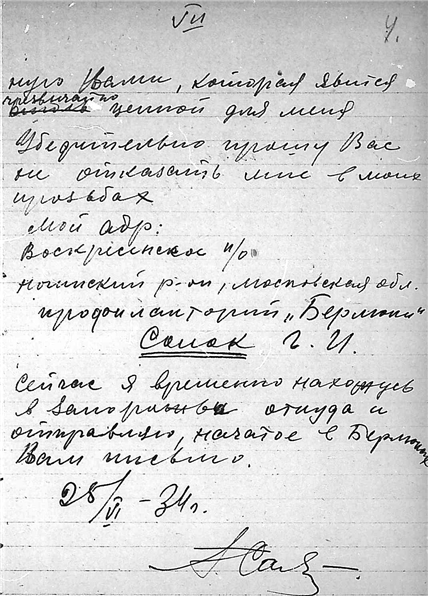 VII
4.
ную Вами, которая явится
чрезвычайно
ценной для меня
Убедительно прошу Вас
не отказать мне в моих
прозьбах
Мой адр:
Воскресинское п/о
ногинский р-он, московская обл.
профилакторий „Берлюки"
Г. И.
Сейчас я временно нахожусь
в Запорожьи откуда и
отправляю, начатое в Берлюках
Вам письмо.
25/VI – 34 г.